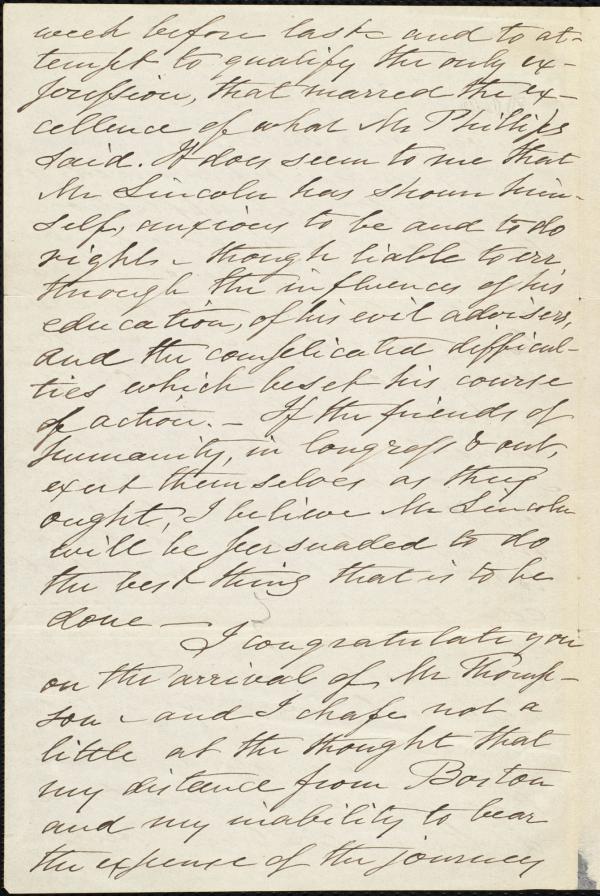 week before last - and to at-
tempt to qualify the only ex-
pression, that marred the ex-
cellence of what Mr Phillips
said. It does seem to me that
Mr Lincoln has shown him-
self, anxious to be and to do
right - though liable to err
through the influences of his
education, of his evil advisers,
and the complicated difficul-
ties which beset his course
of action. - If the friends of
humanity, in Congress & out,
exert themselves as they
ought, I believe Mr Lincoln
will be persuaded to do
the best thing that is to be
done -
I congratulate you
on the arrival of Mr Thomp-
son - and I chafe not a
little at the thought that
my distance from Boston
and my inability to bear
the expense of the journey